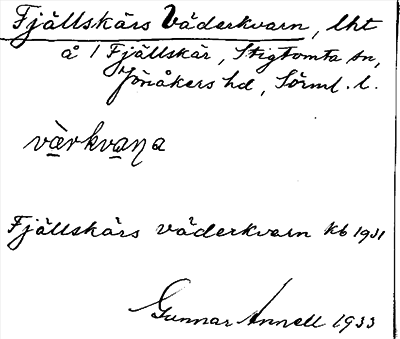 Fjällskärs Väderkvarn, lht
å 1 Fjällskär, Stigtomta sn,
Jönåkers hd, Sörml. l.
vàrkvaṇa
Fjällskärs väderkvarn kb 1931
Gunnar Annell 1933